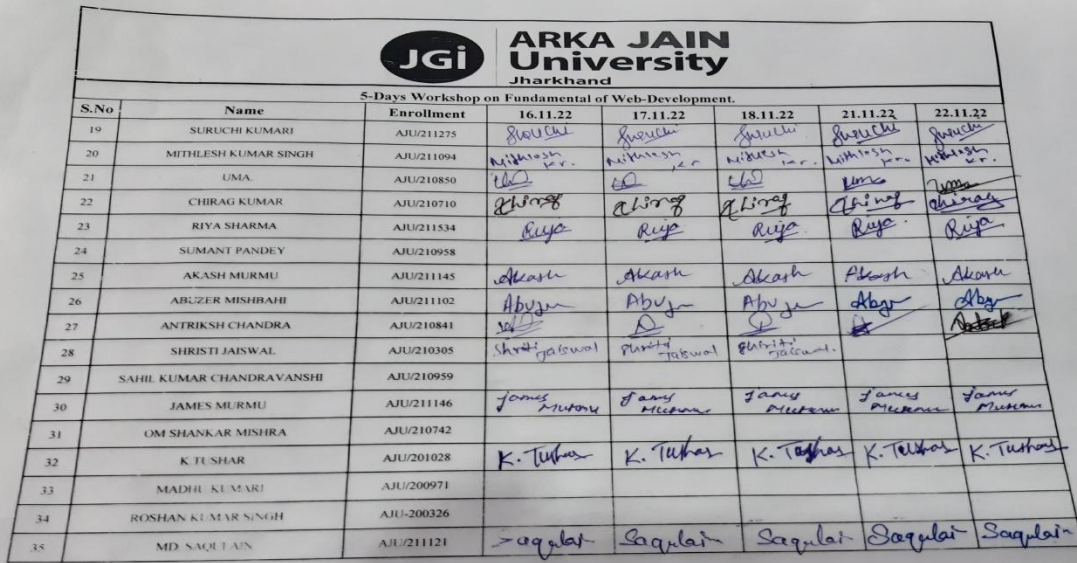 JGi ARKA JAIN University Jharkhand
5-Days Workshop on Fundamental of Web-Development.
S.No Name Enrollment 16.11.22 17.11.22 18.11.22 21.11.22 22.11.22
19 SURUCHI KUMARI AJU/211275 Suruchi Suruchi Suruchi Suruchi Suruchi
20 MITHLESH KUMAR SINGH AJU/211094 Mithlesh Kr. Mithlesh Kr. Mithlesh Kr. Mithlesh Kr. Mithlesh Kr.
21 UMA AJU/210850 Uma Uma
22 CHIRAG KUMAR AJU/210710 Chirag Chirag Chirag Chirag Chirag
23 RIYA SHARMA AJU/211534 Riya Riya Riya Riya Riya
24 SUMANT PANDEY AJU/210958
25 AKASH MURMU AJU/211145 Akash Akash Akash Akash Akash
26 ABUZER MISHBAHI AJU/211102
27 ANTRIKSH CHANDRA AJU/210841
28 SHRISTI JAISWAL AJU/210305 Shristi Jaiswal Shristi Jaiswal Shristi Jaiswal.
29 SAHIL KUMAR CHANDRAVANSHI AJU/210959
30 JAMES MURMU AJU/211146 James Murmu James Murmu James Murmu James Murmu James Murmu
31 OM SHANKAR MISHRA AJU/210742
32 K TUSHAR AJU/201028 K. Tushar K. Tushar K. Tushar K. Tushar K. Tushar
33 MADHU KUMARI AJU/200971
34 ROSHAN KUMAR SINGH AJU-200326
35 MD. SAQULAIN AJU/211121 Saqulai Saqulai Saqulai Saqulai Saqulai